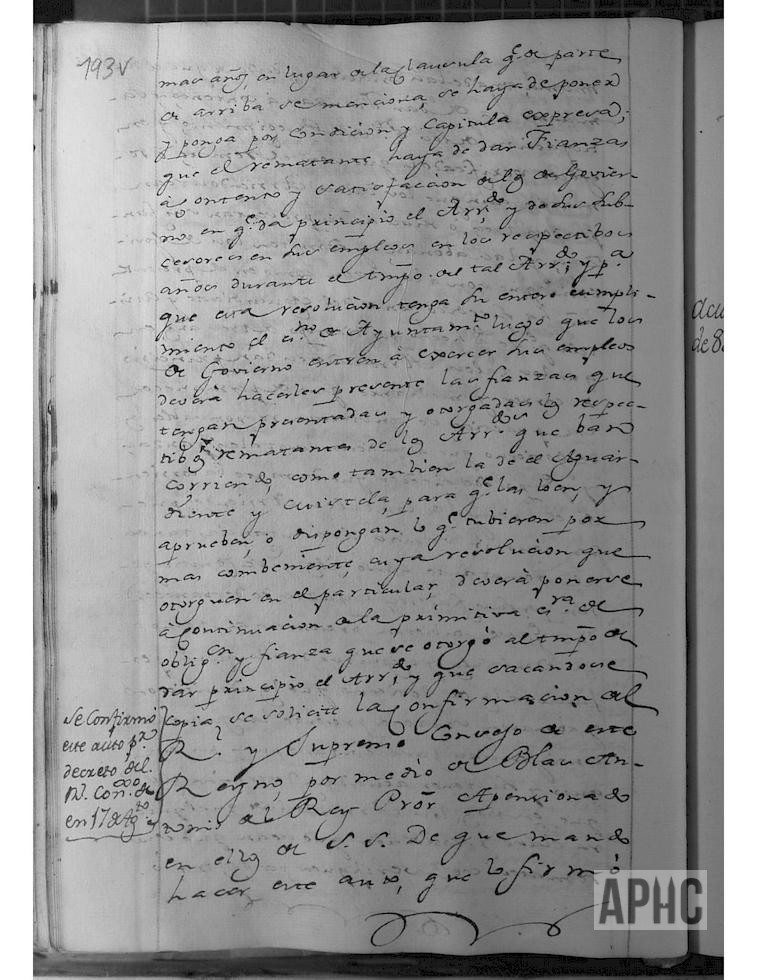 193v
mas años, en lugar de la Clausula q.e de parte
de arriba se menciona, se haya de poner
y ponga por Condicion y Capitula expresa,
que el rematante haya de dar Fianzas
à Contento y satisfaccion de los de Govier-
no en q.e da principio el Arr.do y de sus sub-
cesores en sus empleos en los respectibos
años durante el tmpo. de tal Arr.do; y p.a
que esta resolucion tenga su entero cumpli-
miento el es.no de Ayuntam.to luego que los
de Govierno entren à exercer sus empleos
deverà hacerles presente las fianzas que
tengan presentadas y otorgadas los respec-
tibos rematantes de los Arr.dos que haràn
corriendo, como tambien la de el Aguar-
diente y Cuistela, para q.e las loen, y
aprueben, o dispongan lo q.e tubieren por
mas combeniente, cuya resolucion que
otorguen en el particular, deverà ponerse
à Continuacion de la primitiva es.ra de
oblig.cn y fianza que se otorgò al tmpo de
dar principio el Arr.do; y que sacandose
copia, se solicite la Confirmacion del
R.l y Supremo Consejo de este
Reyno, por medio de Blas An-
tonio del Rey Pròr Apensionado
en ellos de S. S. De que mandò
hacer este auto, que lo firmò
Se Confirmó
este auto p.r
decreto del
R. Con.º de
en 17 de Ag.to
acu
de 8
APHC